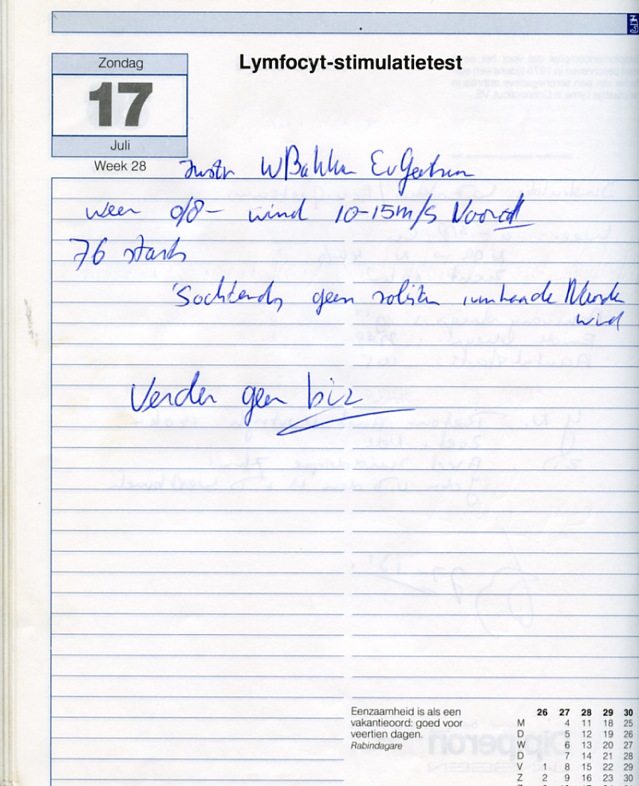 Zondag
17
Juli
Week 28
Lymfocyt-stimulatietest
Instr W Bakker Ev Geetrum
weer 0/8 - wind 10-15 m/s Noord
76 starts
'Sochtends geen solisten i.v.m. harde Noorden
wind
Verder geen biz
Eenzaamheid is als een
vakantieoord: goed voor
veertien dagen.
Rabindagare
26 27 28 29 30
M 4 11 18 25
D 5 12 19 26
W 6 13 20 27
D 7 14 21 28
V 1 8 15 22 29
Z 2 9 16 23 30